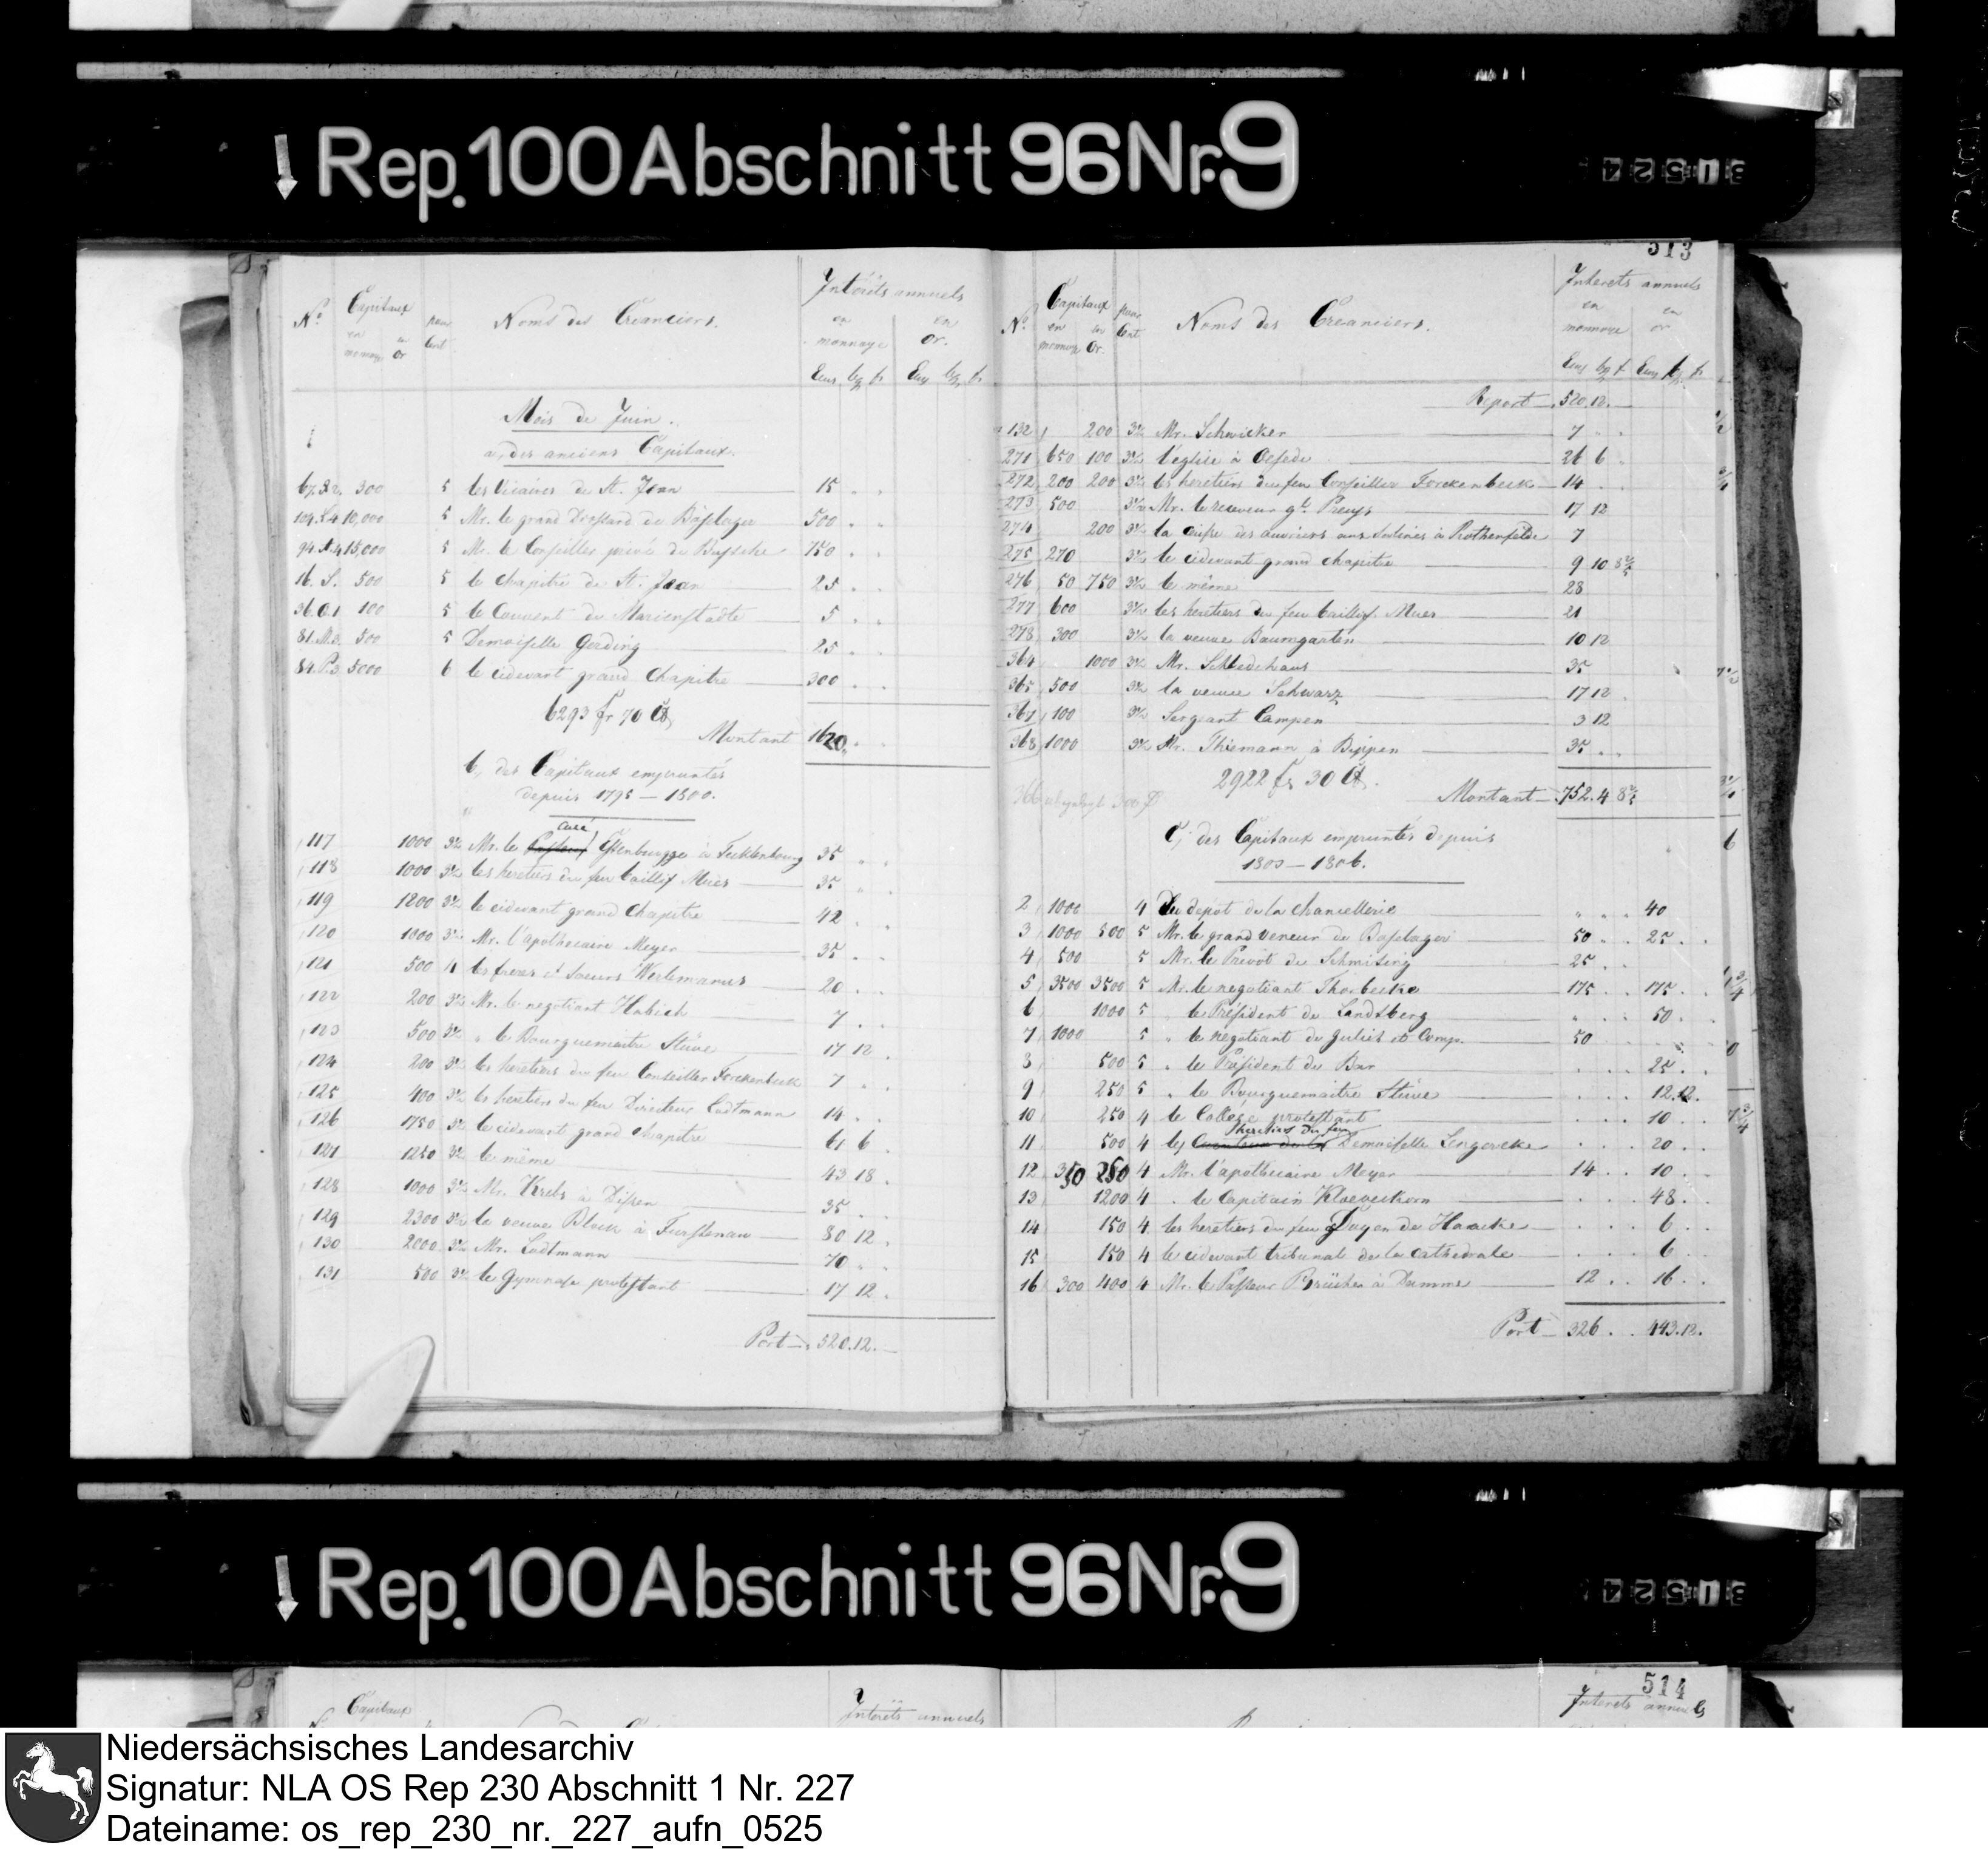 Rep. 100 Abschnitt 96 Nr. 9
31524
513
No. Capitaux en monnoye en Or pour Cent Noms des Creanciers. Intérêts annuels en monnoye en Or.
Mois de Juin.
a, des anciens Capitaux.
300 5 les Vicaires de St. Jean 15
10,000 5 Mr. le grand Drossard de 500
15,000 5 Mr. le Conseiller privée de Bussche 750
16. S. 500 5 le Chapitre de St. Jean 25
36 O 1 100 5 le Couvent de Marienstädte 5
81. M.3. 500 5 Demoiselle Gerding 25
84 P.3 5000 6 le cidevant grand Chapitre 300
6293 fr 70 Ct.
Montant 1620
b, des Capitaux empruntés
depuis 1795 – 1800.
117 1000 3½ Mr. le curé à Tecklenbourg 35
118 1000 3½ les heretiers du feu bailli Mües 35
119 1200 3½ le cidevant grand Chapitre 42
120 1000 3½ Mr. l'apothecaire Meyer 35
121 500 4 les freres et soeurs 20
122 200 3½ Mr. le negotiant Habich 7
123 500 3½ " le Bourguemaitre Stüve 17 12
124 200 3½ les heretiers du feu Conseiller Forckenbeck 7
125 400 3½ les heretiers du feu Directeur Lodtmann 14
126 1750 3½ le cidevant grand chapitre 61 6
127 1250 3½ le même 43 18
128 1000 3½ Mr. Krebs à Dissen 35
129 2300 3½ la veuve Block à Furstenau 80 12
130 2000 3½ Mr. Lodtmann 70
131 500 3½ le Gymnase protestant 17 12
Port 520.12.
No. Capitaux en monnoye en Or. pour Cent Noms des Creanciers. Interets annuels en monnoye en or
Report 520.12.
132 200 3½ Mr. Schwicker 7
271 650 100 3½ l'eglise à Oesede 26 6
272 200 200 3½ les heretiers du feu Conseiller Forckenbeck 14
273 500 3½ Mr. le receveur gl. Preuss 17 12
274 200 3½ la caisse des ouvriers aux Salines à Rothenfelde 7
275 270 3½ le cidevant grand chapitre 9 10 8⅖
276 50 750 3½ le même 28
277 600 3½ les heretiers du feu bailli Mues 21
278 300 3½ la veuve Baumgarten 10 12
364 1000 3½ Mr. Schledehaus 35
365 500 3½ la veuve Schwarz 17 12
367 100 3½ Sergeant Campen 3 12
368 1000 3½ Mr. Thiemann à Bippen 35
2922 fr 30 Ct.
Montant 752.4 8⅖
C, des Capitaux empruntés depuis
1800 – 1806.
2 1000 4 Du depot de la chancellerie 40
3 1000 500 5 Mr. le grand veneur de 50 25
4 500 5 Mr. le Prevôt de Schmising 25
5 3500 3500 5 Mr. le negotiant Thorbecke 175 175
6 1000 5 " le Président de Landsberg 50
7 1000 5 " le negotiant de Gulich et Comp. 50
8 500 5 " le Président de Bar 25
9 250 5 " le Bourguemaitre Stüve 12.12.
10 250 4 le College protestant 10
heretiers du feu
11 500 4 les Demoiselle Lengercke 20
12 350 250 4 Mr. l'apothecaire Meyer 14 10
13 1200 4 " le Capitain Kloevekorn 48
14 150 4 les heretiers du feu Doyen de Haacke 6
15 150 4 le cidevant tribunal de la cathedrale 6
16 300 400 4 Mr. le Pasteur à Damme 12 16
Port 326 443.12.
Rep. 100 Abschnitt 96 Nr. 9
31524
514
Capitaux
Intérêts annuels
Interets annuels
Niedersächsisches Landesarchiv
Signatur: NLA OS Rep 230 Abschnitt 1 Nr. 227
Dateiname: os_rep_230_nr._227_aufn_0525